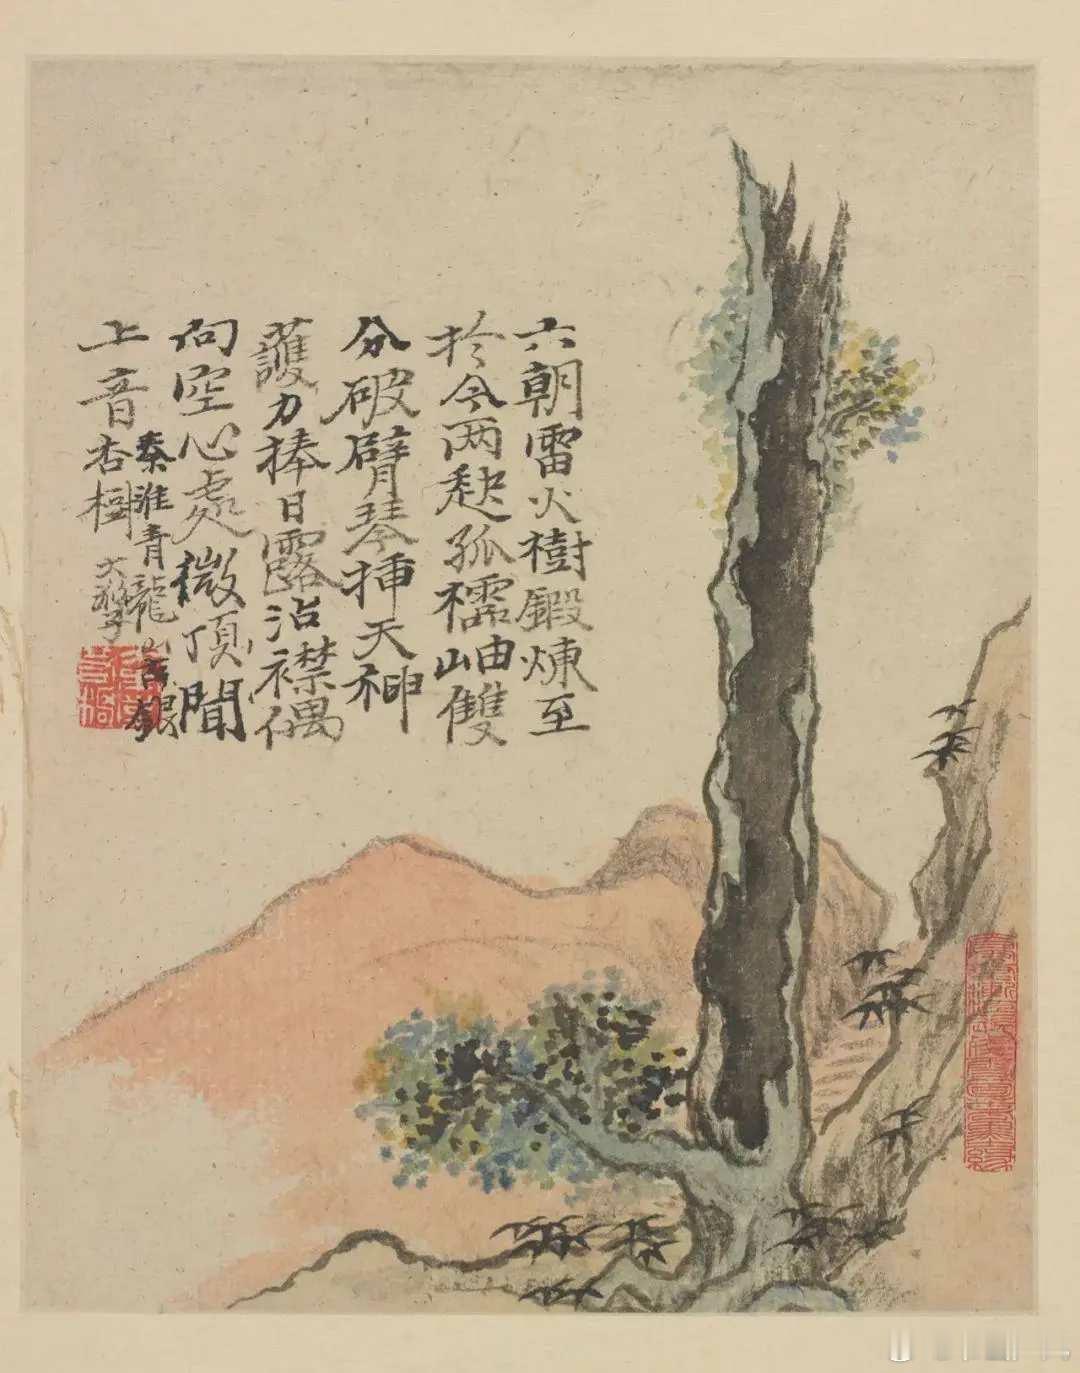 六朝雷火樹鍛煉至
於今两孤襦岫雙
分破臂琴挿天神
護力捧日露沾襟偶
向空心處微頂聞
上音
秦淮青龍山古銀
杏樹 大滌子